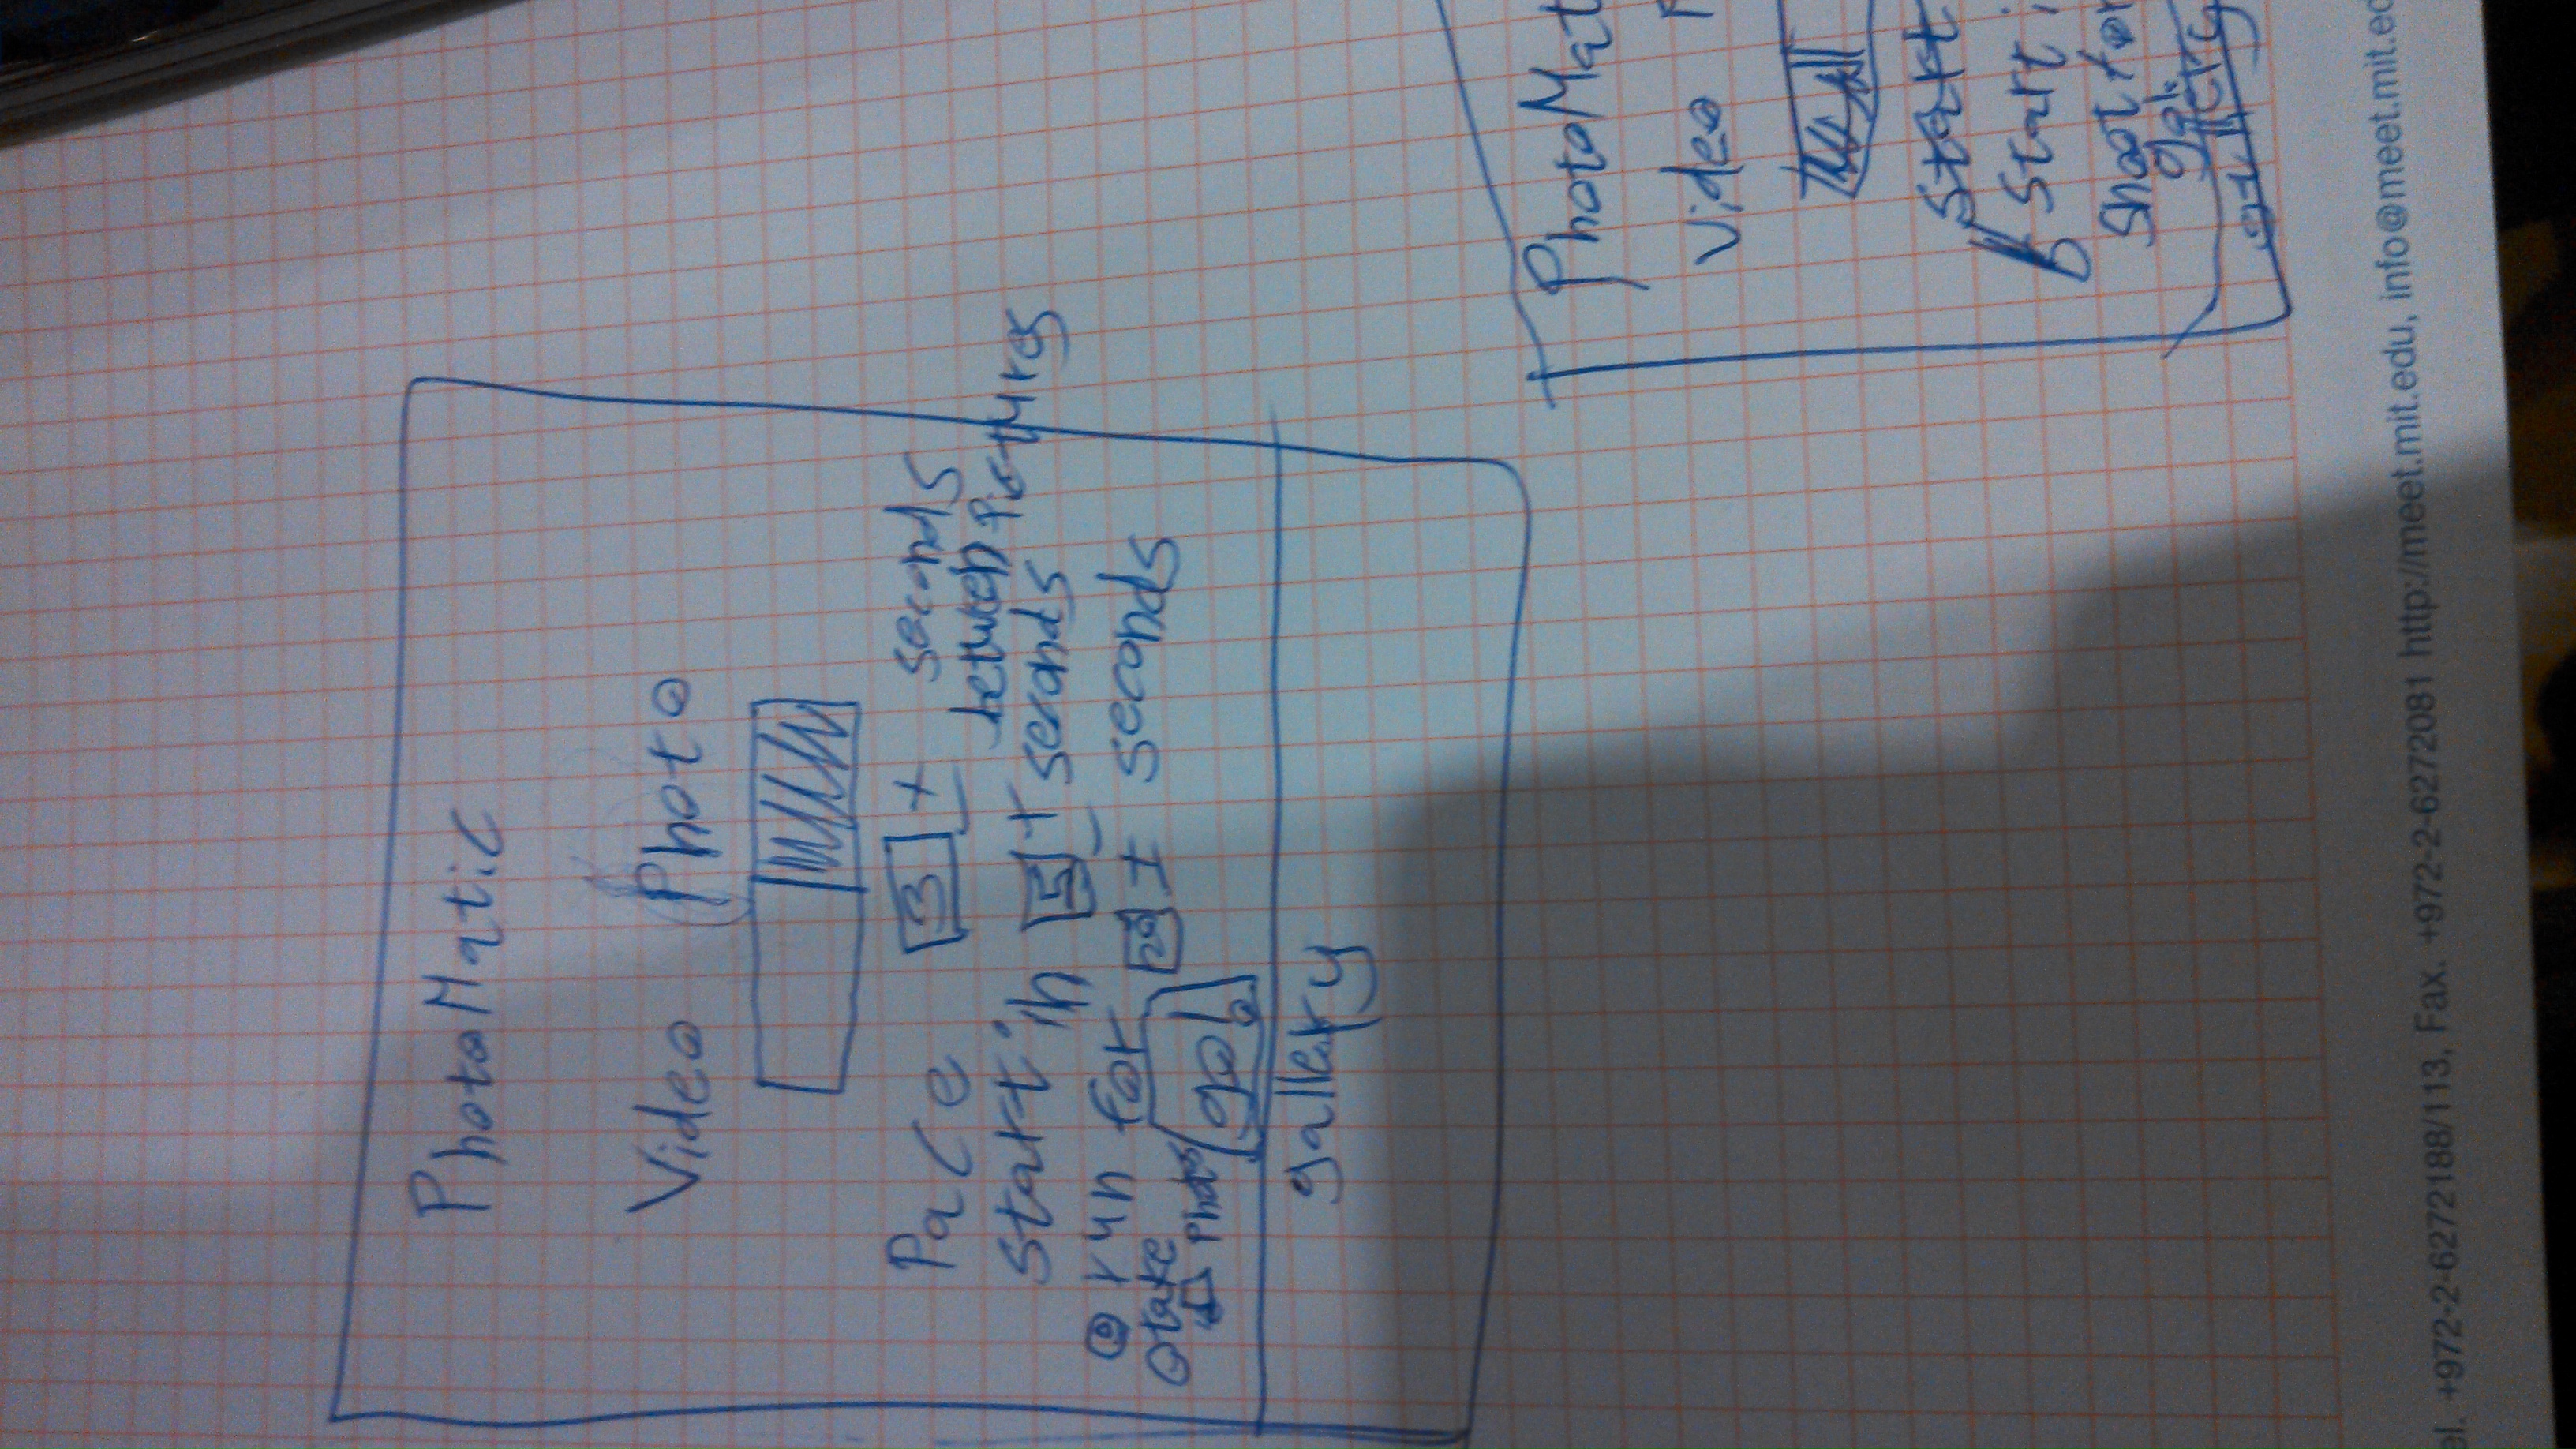 PhotoMatic
Video Photo
Pace 3 + - seconds
between pictures
start in 5 + - seconds
run for 20 + - seconds
take
photos
go!
gallery
PhotoMat
Video P
start
start i
shoot for
go!
gallery
el. +972-2-6272188/113, Fax. +972-2-6272081 http://meet.mit.edu, info@meet.mit.ed